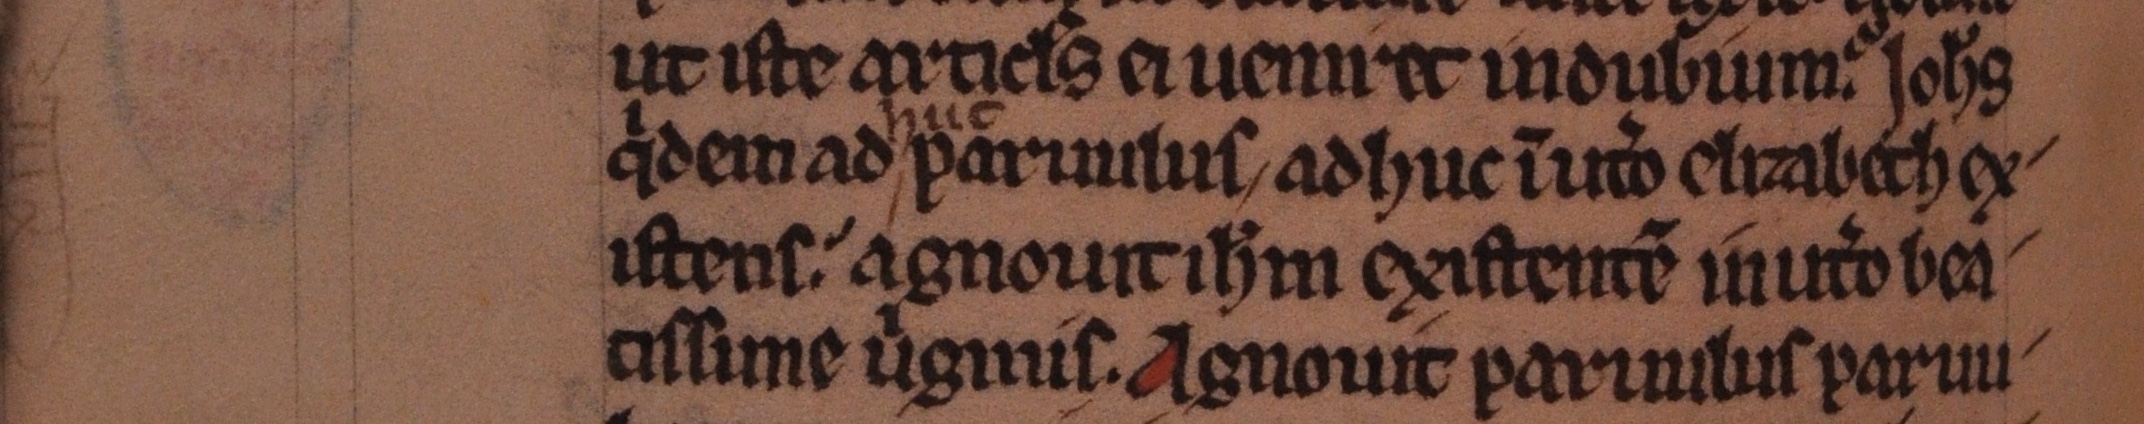 ut iste articl̄s ei ueniret in dubium. Joh̄s
qͥdem ad huc paruulus, adhuc ī ut̉o elizabeth ex-
istens. agnouit ih̄m existentē in ut̉o bea-
tissime uͥginis. Agnouit paruulus paruu-